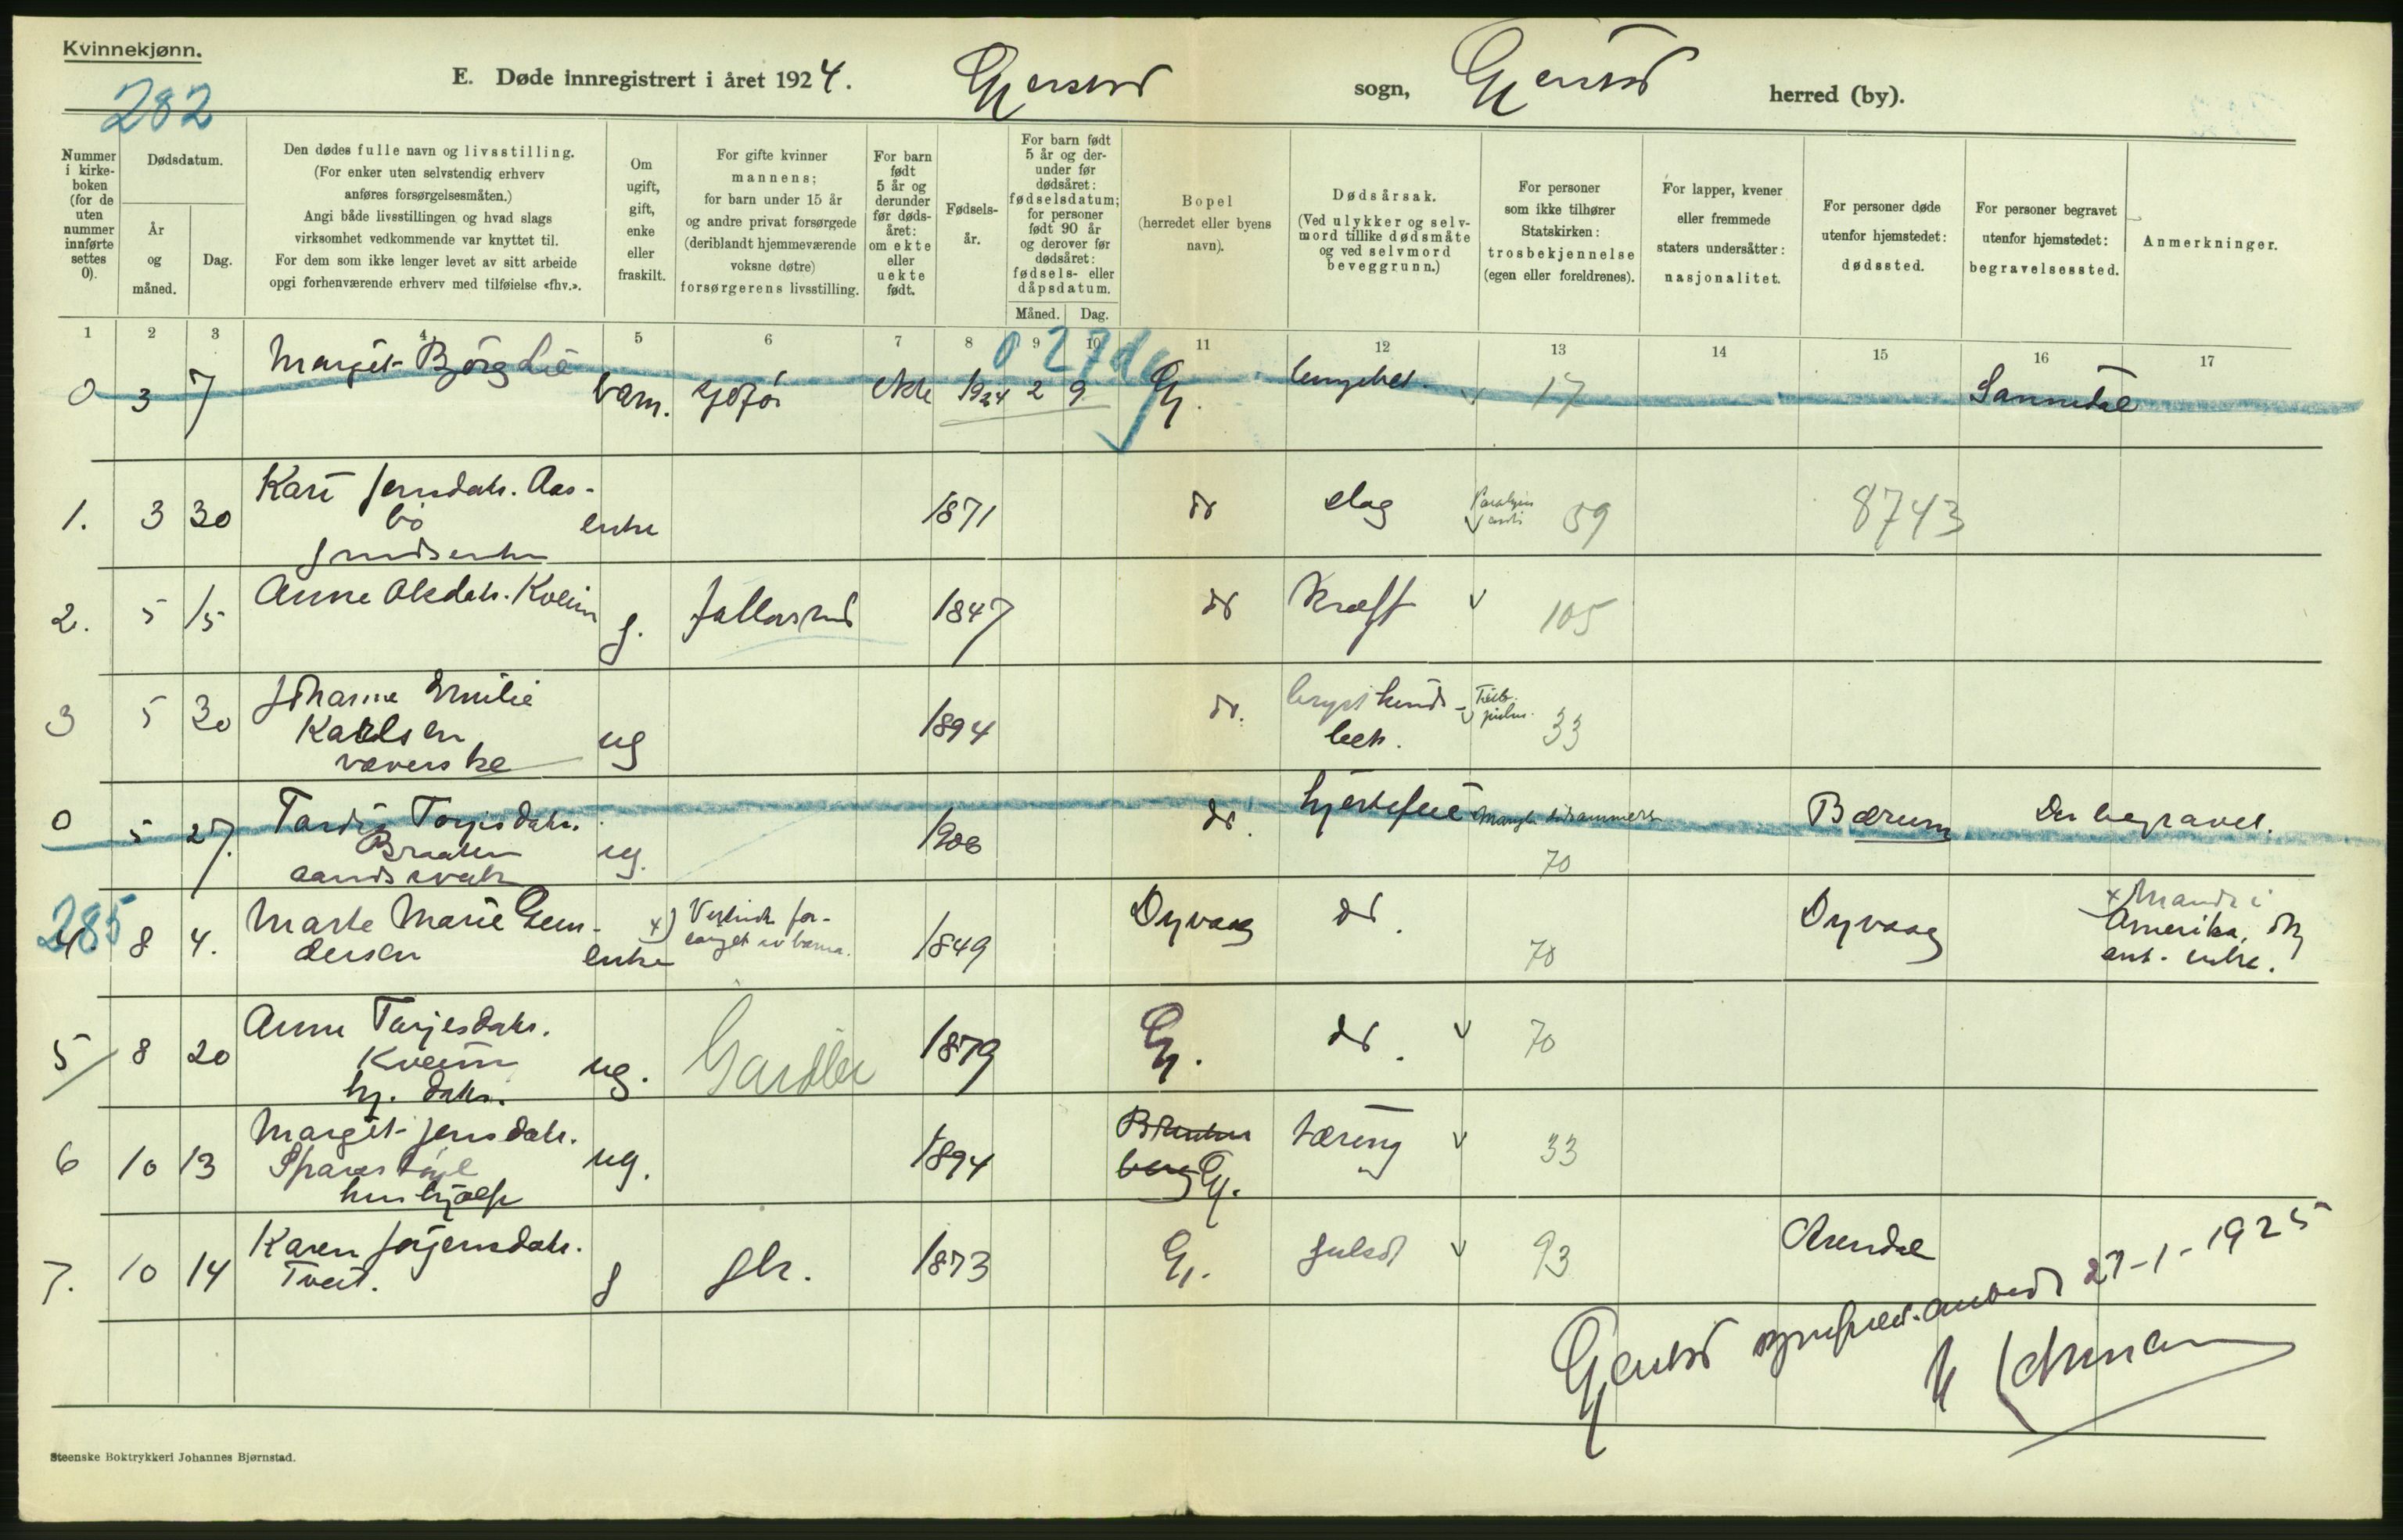 Kvinnekjønn.
E. Døde innregistrert i året 1924. Gjerstad sogn, Gjerstad herred (by).
282
Nummer i kirke-boken (for de uten nummer innførte settes 0).
Dødsdatum.
År og måned.
Dag.
Den dødes fulle navn og livsstilling.
(For enker uten selvstendig erhverv
anføres forsørgelsesmåten.)
Angi både livsstillingen og hvad slags
virksomhet vedkommende var knyttet til.
For dem som ikke lenger levet av sitt arbeide
opgi forhenværende erhverv med tilføielse «fhv.».
Om
ugift,
gift,
enke
eller
fraskilt.
For gifte kvinner
mannens;
for barn under 15 år
og andre privat forsørgede
(deriblandt hjemmeværende
voksne døtre)
forsørgerens livsstilling.
For barn
født
5 år og
derunder
før døds-
året:
om ekte
eller
uekte
født.
Fødsels-
år.
For barn født
5 år og der-
under før
dødsåret:
fødselsdatum;
for personer
født 90 år
og derover før
dødsåret:
fødsels- eller
dåpsdatum.
Måned. Dag.
Bopel
(herredet eller byens
navn).
Dødsårsak.
(Ved ulykker og selv-
mord tillike dødsmåte
og ved selvmord
beveggrunn.)
For personer
som ikke tilhører
Statskirken:
trosbekjennelse
(egen eller foreldrenes).
For lapper, kvener
eller fremmede
staters undersåtter:
nasjonalitet.
For personer døde
utenfor hjemstedet:
dødssted.
For personer begravet
utenfor hjemstedet:
begravelsessted.
Anmerkninger.
1 2 3 4 5 6 7 8 9 10 11 12 13 14 15 16 17
0 3 7 Margit Börg Lie barn. ekte 1924 2 9 Gj. 17 Sannidal
1. 3 30 Kari Jensdatr. Aas-
bö enke 1871 do slag 59 8743
2. 5 15 Anne Olsdatr. Kveim g. 1847 do Kræft v 105
3 5 30 Johanne Emilie
Karlsen
væverske ug 1894 do. brysthinde
bet. 33
0 5 27. Torjusdatr.
Braaten ug. 1906 do. hjertefeil Bærum Der begravet.
70
285
4. 8 4. Marte Marie Gun-
dersen enke x) 1849 Dyvaag do. 70 Dyvaag x Mand i
Amerika,
ant. enke.
5 8 20 Anne Tarjesdatr.
Kveim
hj. datr. ug. Gardbr 1879 Gj. do. v 70
6 10 13 Margit Jensdatr.
hushjælp ug. 1894 Gj. tæring v 33
7. 10 14 Karen Jörgensdatr.
Tveit. g gbr. 1873 Gj. gulsot v 93 Arendal
Gjerstad sogneprest.embede 27-1-1925
Steenske Boktrykkeri Johannes Bjørnstad.